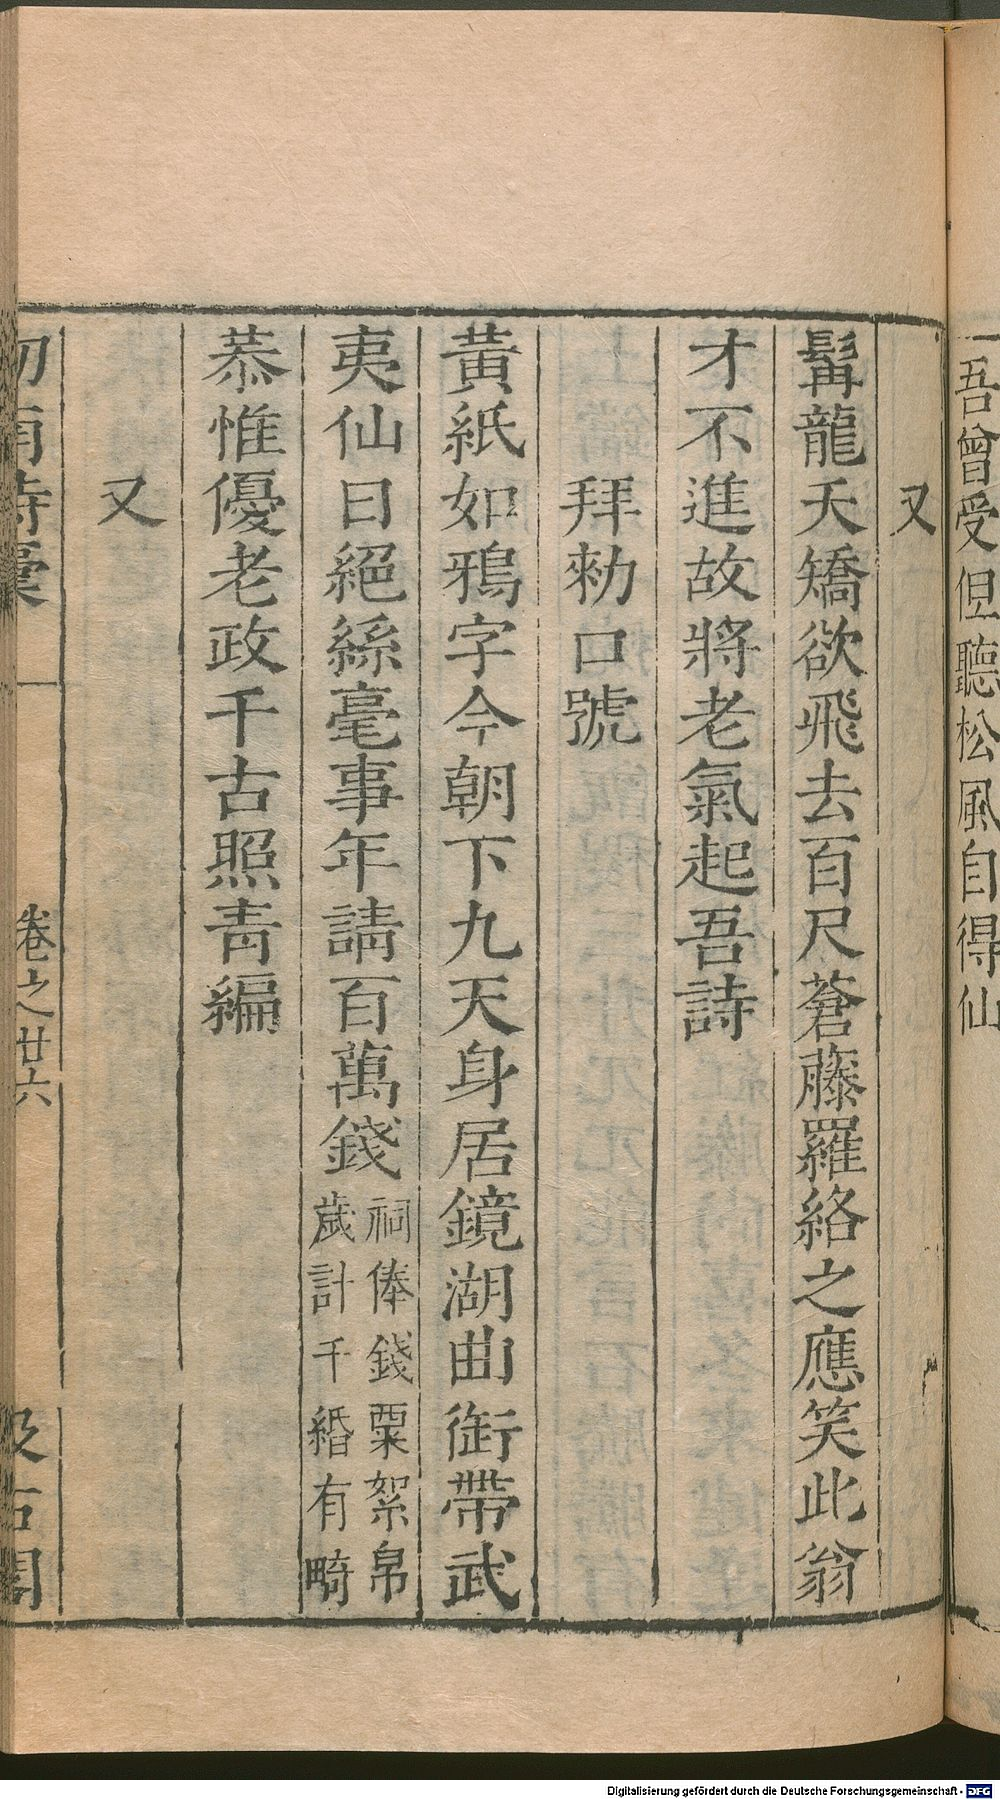 吾曾受但聽松風自得仙
又
髯龍夭矯欲飛去百尺蒼藤羅絡之應笑此翁
才不進故將老氣起吾詩
拜勑口號
黃紙如鴉字今朝下九天身居鏡湖曲銜帶武
夷仙日絕絲毫事年請百萬錢
祠俸錢粟絮帛
歲計千緡有畸
恭惟優老政千古照靑編
又
劍南詩稾 卷之廿六 汲古閣
Digitalisierung gefördert durch die Deutsche Forschungsgemeinschaft - DFG